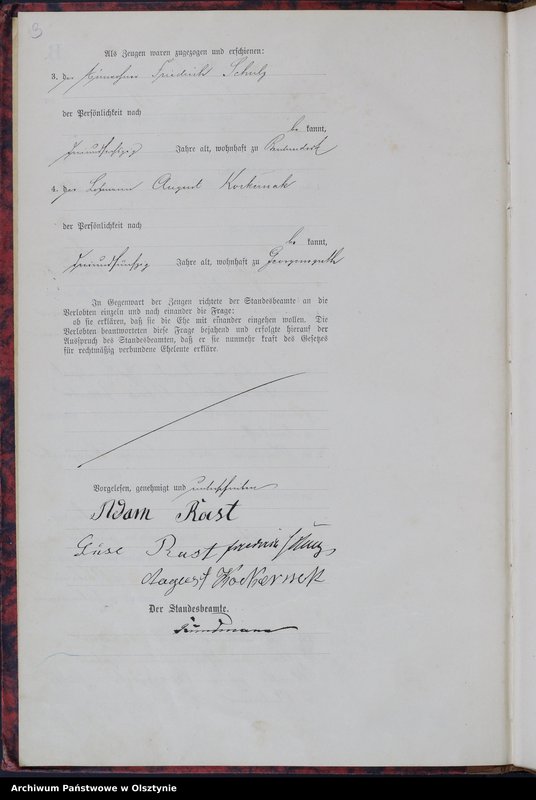 B
Als Zeugen waren zugezogen und erschienen:
3. der Einwohner Friedrich Schulz
der Persönlichkeit nach
be kannt,
Jahre alt, wohnhaft zu
4. der Losmann August Kockernak
der Persönlichkeit nach
be kannt,
dreiundfünfzig Jahre alt, wohnhaft zu Georgensguth
In Gegenwart der Zeugen richtete der Standesbeamte an die
Verlobten einzeln und nach einander die Frage:
ob sie erklären, daß sie die Ehe mit einander eingehen wollen. Die
Verlobten beantworteten diese Frage bejahend und erfolgte hierauf der
Ausspruch des Standesbeamten, daß er sie nunmehr kraft des Gesetzes
für rechtmäßig verbundene Eheleute erkläre.
Vorgelesen, genehmigt und unterschrieben
Adam Rast
Rast
August Kockernak
Der Standesbeamte.
Archiwum Państwowe w Olsztynie